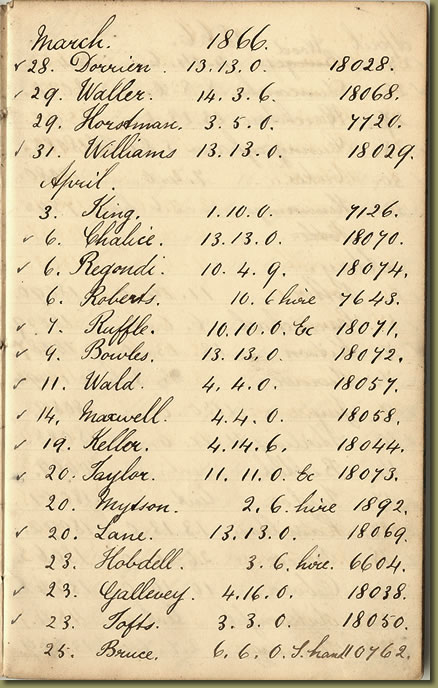 March. 1866.
✓ 28. Dorrien 13.13.0. 18028.
✓ 29. Waller. 14.3.6. 18068.
29. Horstman. 3.5.0. 7720.
✓ 31. Williams 13.13.0. 18029.
April.
3. King. 1.10.0. 7126.
✓ 6. Chalice. 13.13.0. 18070.
✓ 6. Regondi. 10.4.9. 18074.
6. Roberts. 10.6 hire 7643.
✓ 7. Ruffle. 10.10.0. Ec 18071.
✓ 9. Bowles. 13.13.0. 18072.
✓ 11. Wald. 4.4.0. 18057.
✓ 14. Maxwell. 4.4.0. 18058.
✓ 19. Keller. 4.14.6. 18044.
✓ 20. Taylor. 11.11.0. Ec 18073.
20. Mytson. 2.6. hire 1892.
✓ 20. Lane. 13.13.0. 18069.
23. Hobdell. 3.6. hire. 6604.
✓ 23. Gallevey. 4.16.0. 18038.
✓ 23. Tofts. 3.3.0. 18050.
25. Bruce. 6.6.0. S. hand 10762.